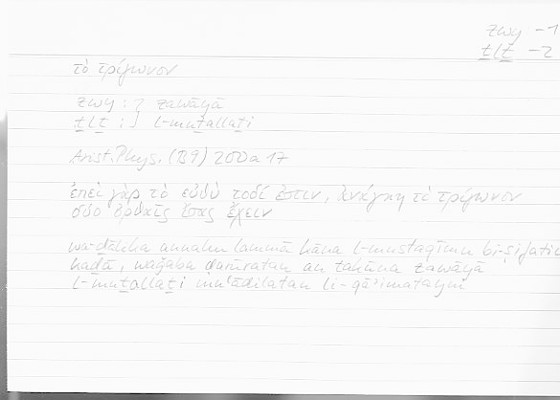 zwy – 1
ṯlṯ – 2
τὸ τρίγωνον
zwy : zawāyā
ṯlṯ : l-muṯallaṯi
Arist. Phys. (B9) 200a 17
ἐπεὶ γὰρ τὸ εὐθὺ τοδί ἐστιν, ἀνάγκη τὸ τρίγωνον
δύο ὀρθαῖς ἴσας ἔχειν
wa-ḏālika annahu lammā kāna l-mustaqīmu bi-ṣifati
hāḏā, waǧaba ḍarūratan an takūna zawāyā
l-muṯallaṯi muʿādilatan li-qāʾimatayni